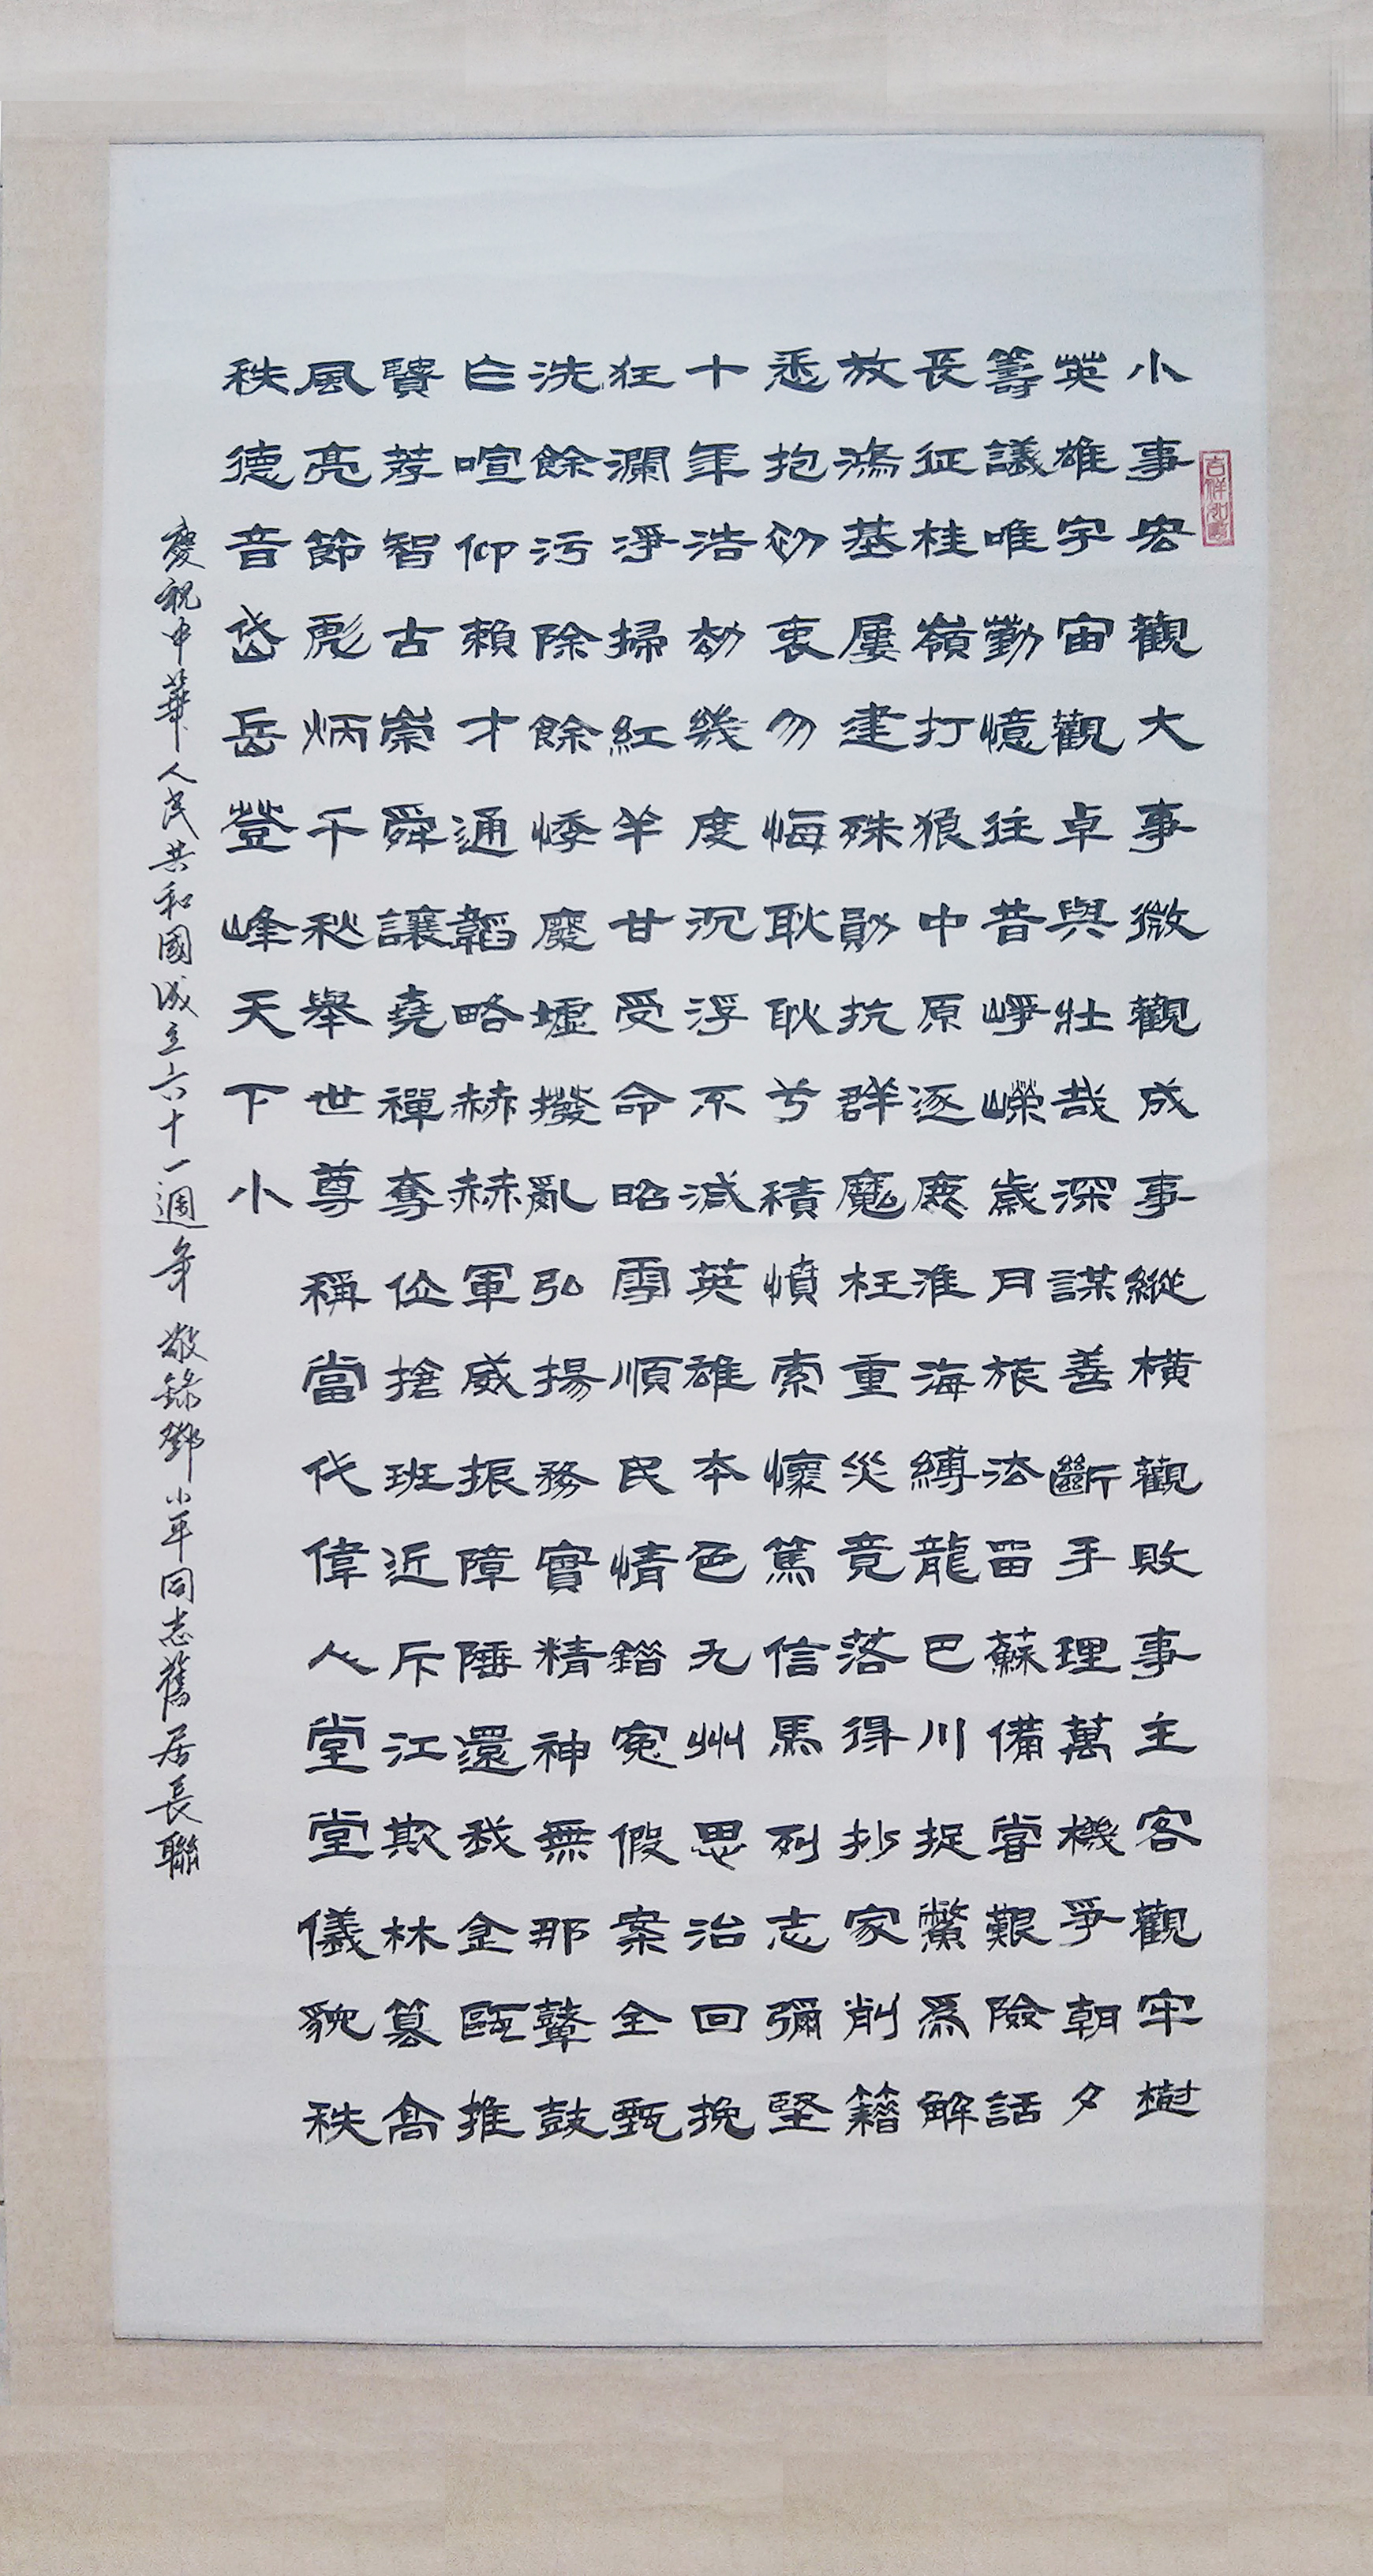 吉祥如意
小事宏觀大事微觀成事縱橫觀敗事主客觀牢樹
英雄宇宙觀卓與壯哉深謀善斷手理萬機爭朝夕
籌議唯勤憶往昔崢嶸歲月旅法留蘇備嘗艱險話
長征桂嶺打狼中原逐鹿淮海縛龍巴川捉鱉爲解
放鴻基屢建殊勛抗群魔枉重災竟落得抄家削籍
悉抱初衷勿悔耿耿兮積憤索懷篤信馬列志彌堅
十年浩劫幾度沉浮不減英雄本色九州思治回挽
狂瀾淨掃紅羊甘受命昭雪順民情錯冤假案全甄
洗餘污除餘悸廢墟撥亂弘揚務實精神無那鼙鼓
喧仰賴才通韜略赫赫軍威振障陲還我金甌推
賢智古崇舜讓堯禪奪位搶班近斥江欺林篡高
風亮節彪炳千秋舉世尊稱當代偉人堂堂儀貌秩
秩德音岱岳登峰天下小
慶祝中華人民共和國成立六十一週年 敬錄鄧小平同志舊居長聯